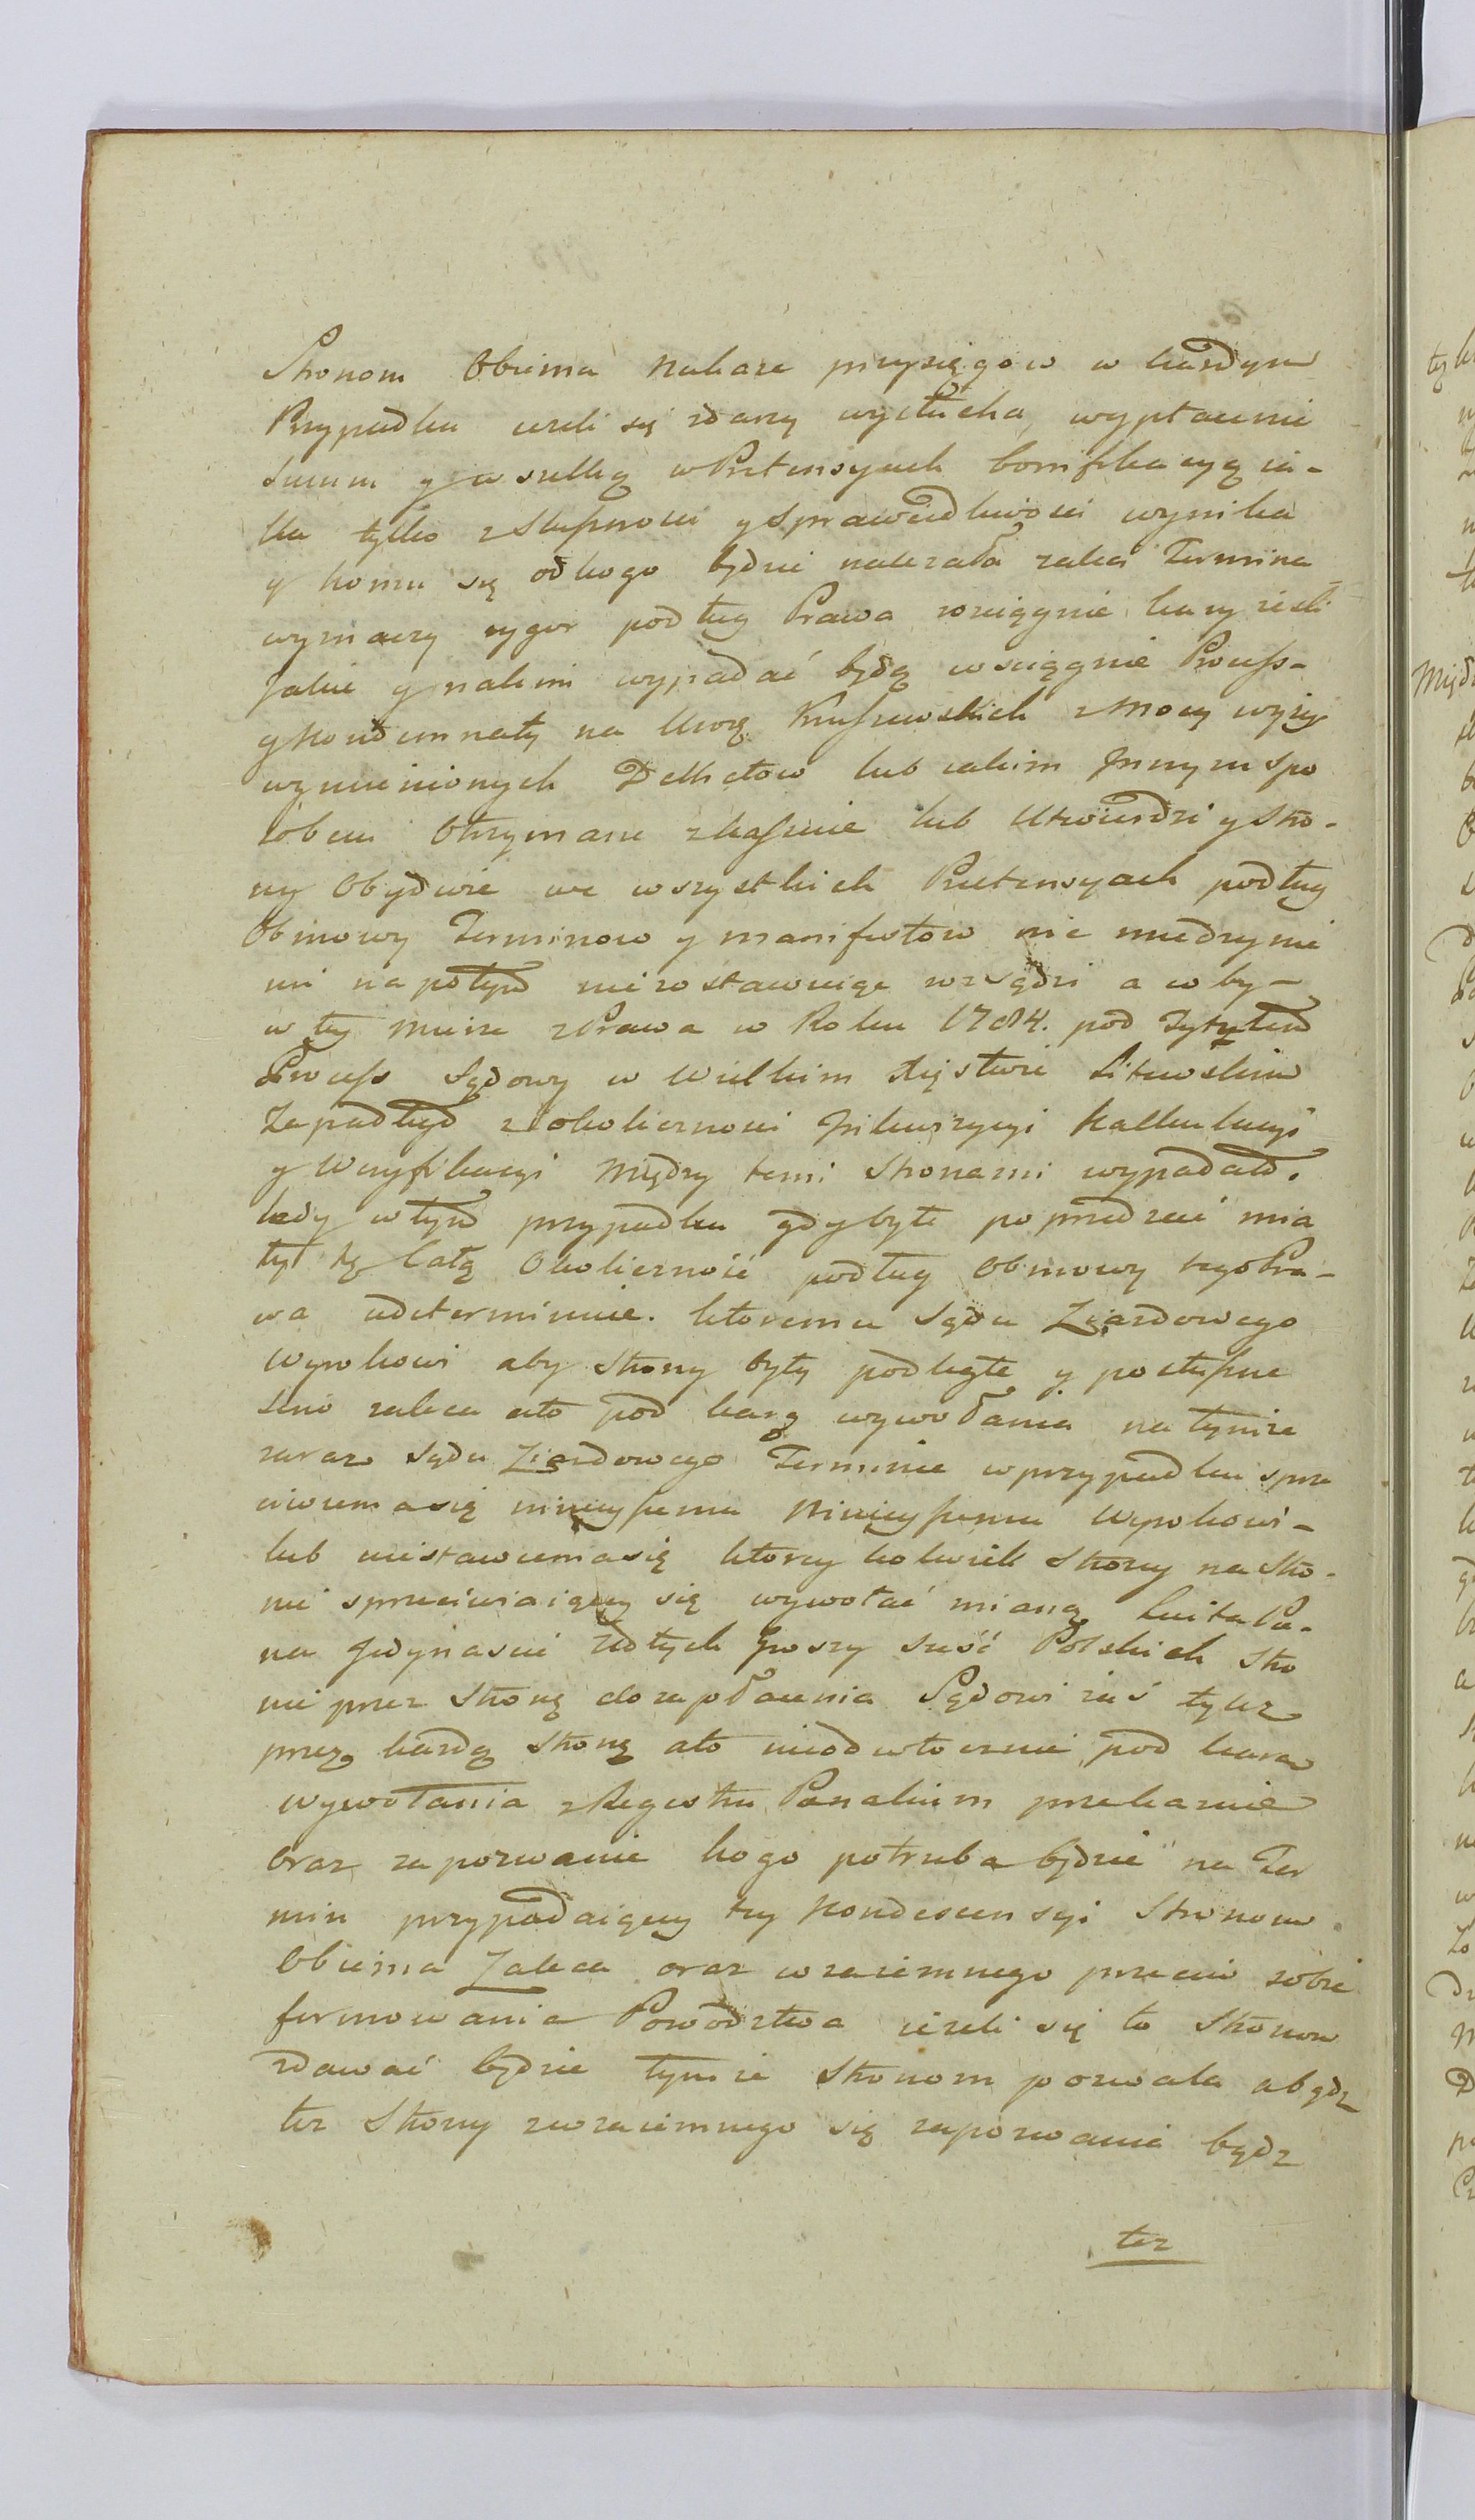 Stronom Obiema nakaze przysięgow w każdym
Przypadku iezeli się zdarzy wysłucha, wypłacenie
Summ y wszelką w Pretensyach bonifikacyą ia-
ka tylko z Słusznosci y Sprawiedliwosci wynika
y komu się od kogo będzie nalezała zaleci Termina
wyznaczy rygor podług Prawa rosciągnie kary iesli
jakie y na kim wypadać będą wsciągnie Process-
y Kondemnaty na Urog Kruszewskich z Mocy wyżey
wymienionych Dekretow lub iakim Innym spo
sobem Otrzymane skassuie lub Utwierdzi y Stro-
ny Obydwie we wszystkich Pretensyach podług
Obmowy Terminow y manifestow nic miedzy nie
mi na potym niezostawuiąc rozsądzi a w by-
w tey mierze z Prawa w Roku 1784. pod Tytułem
Process Sądowy w Wielkim Xięstwie Litewskim
Zapadłego z okolicznosci Inkwizycyi Kalkulacyi
y Weryfikacyi między temi Stronami wypadało.
tedy w tym przypadku gdyby te poprzedzać mia
ły tę Całą Okoliczność podług Obmowy tego Pra-
wa udeterminuie. ktoremu Sądu Ziazdowego
Wyrokowi aby Strony były podległe y posłuszne
scisle zaleca a to pod karą wywołania na tymze
zaraz Sądu Ziazdowego Terminie w przypadku sprze
ciwienia się ninieyszemu Ninieyszemu Wyrokowi-
lub niestawienia się ktorey kolwiek Strony na Stro-
nie sprzeciwiaiącey się wywołać mianą Luita Pa-
na Jedynascie Złłtych Groszy szesć Polskich Stro
nie przez Stronę do zapłacenia Sądowi zaś tylez
przez każdą Stronę a to nieodwłocznie pod karą
wywołania z Regestru Panalium przekazuie
oraz zapozwanie kogo potrzeba będzie na Ter
min przypadaiący tey Kondescensyi Stronom
Obiema Zaleca oraz wzaiemnego przeciw sobie
formowania Powodztwa iezeli się to Stronom
zdawać będzie tymze Stronom pozwala a bądz
tez Strony z wzaiemnego się zapozwania bądz
tez